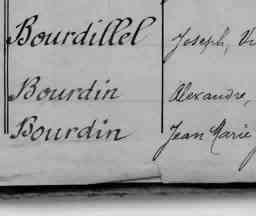 Bourdillel Joseph, Vi
Bourdin Alexandre,
Bourdin Jean Marie